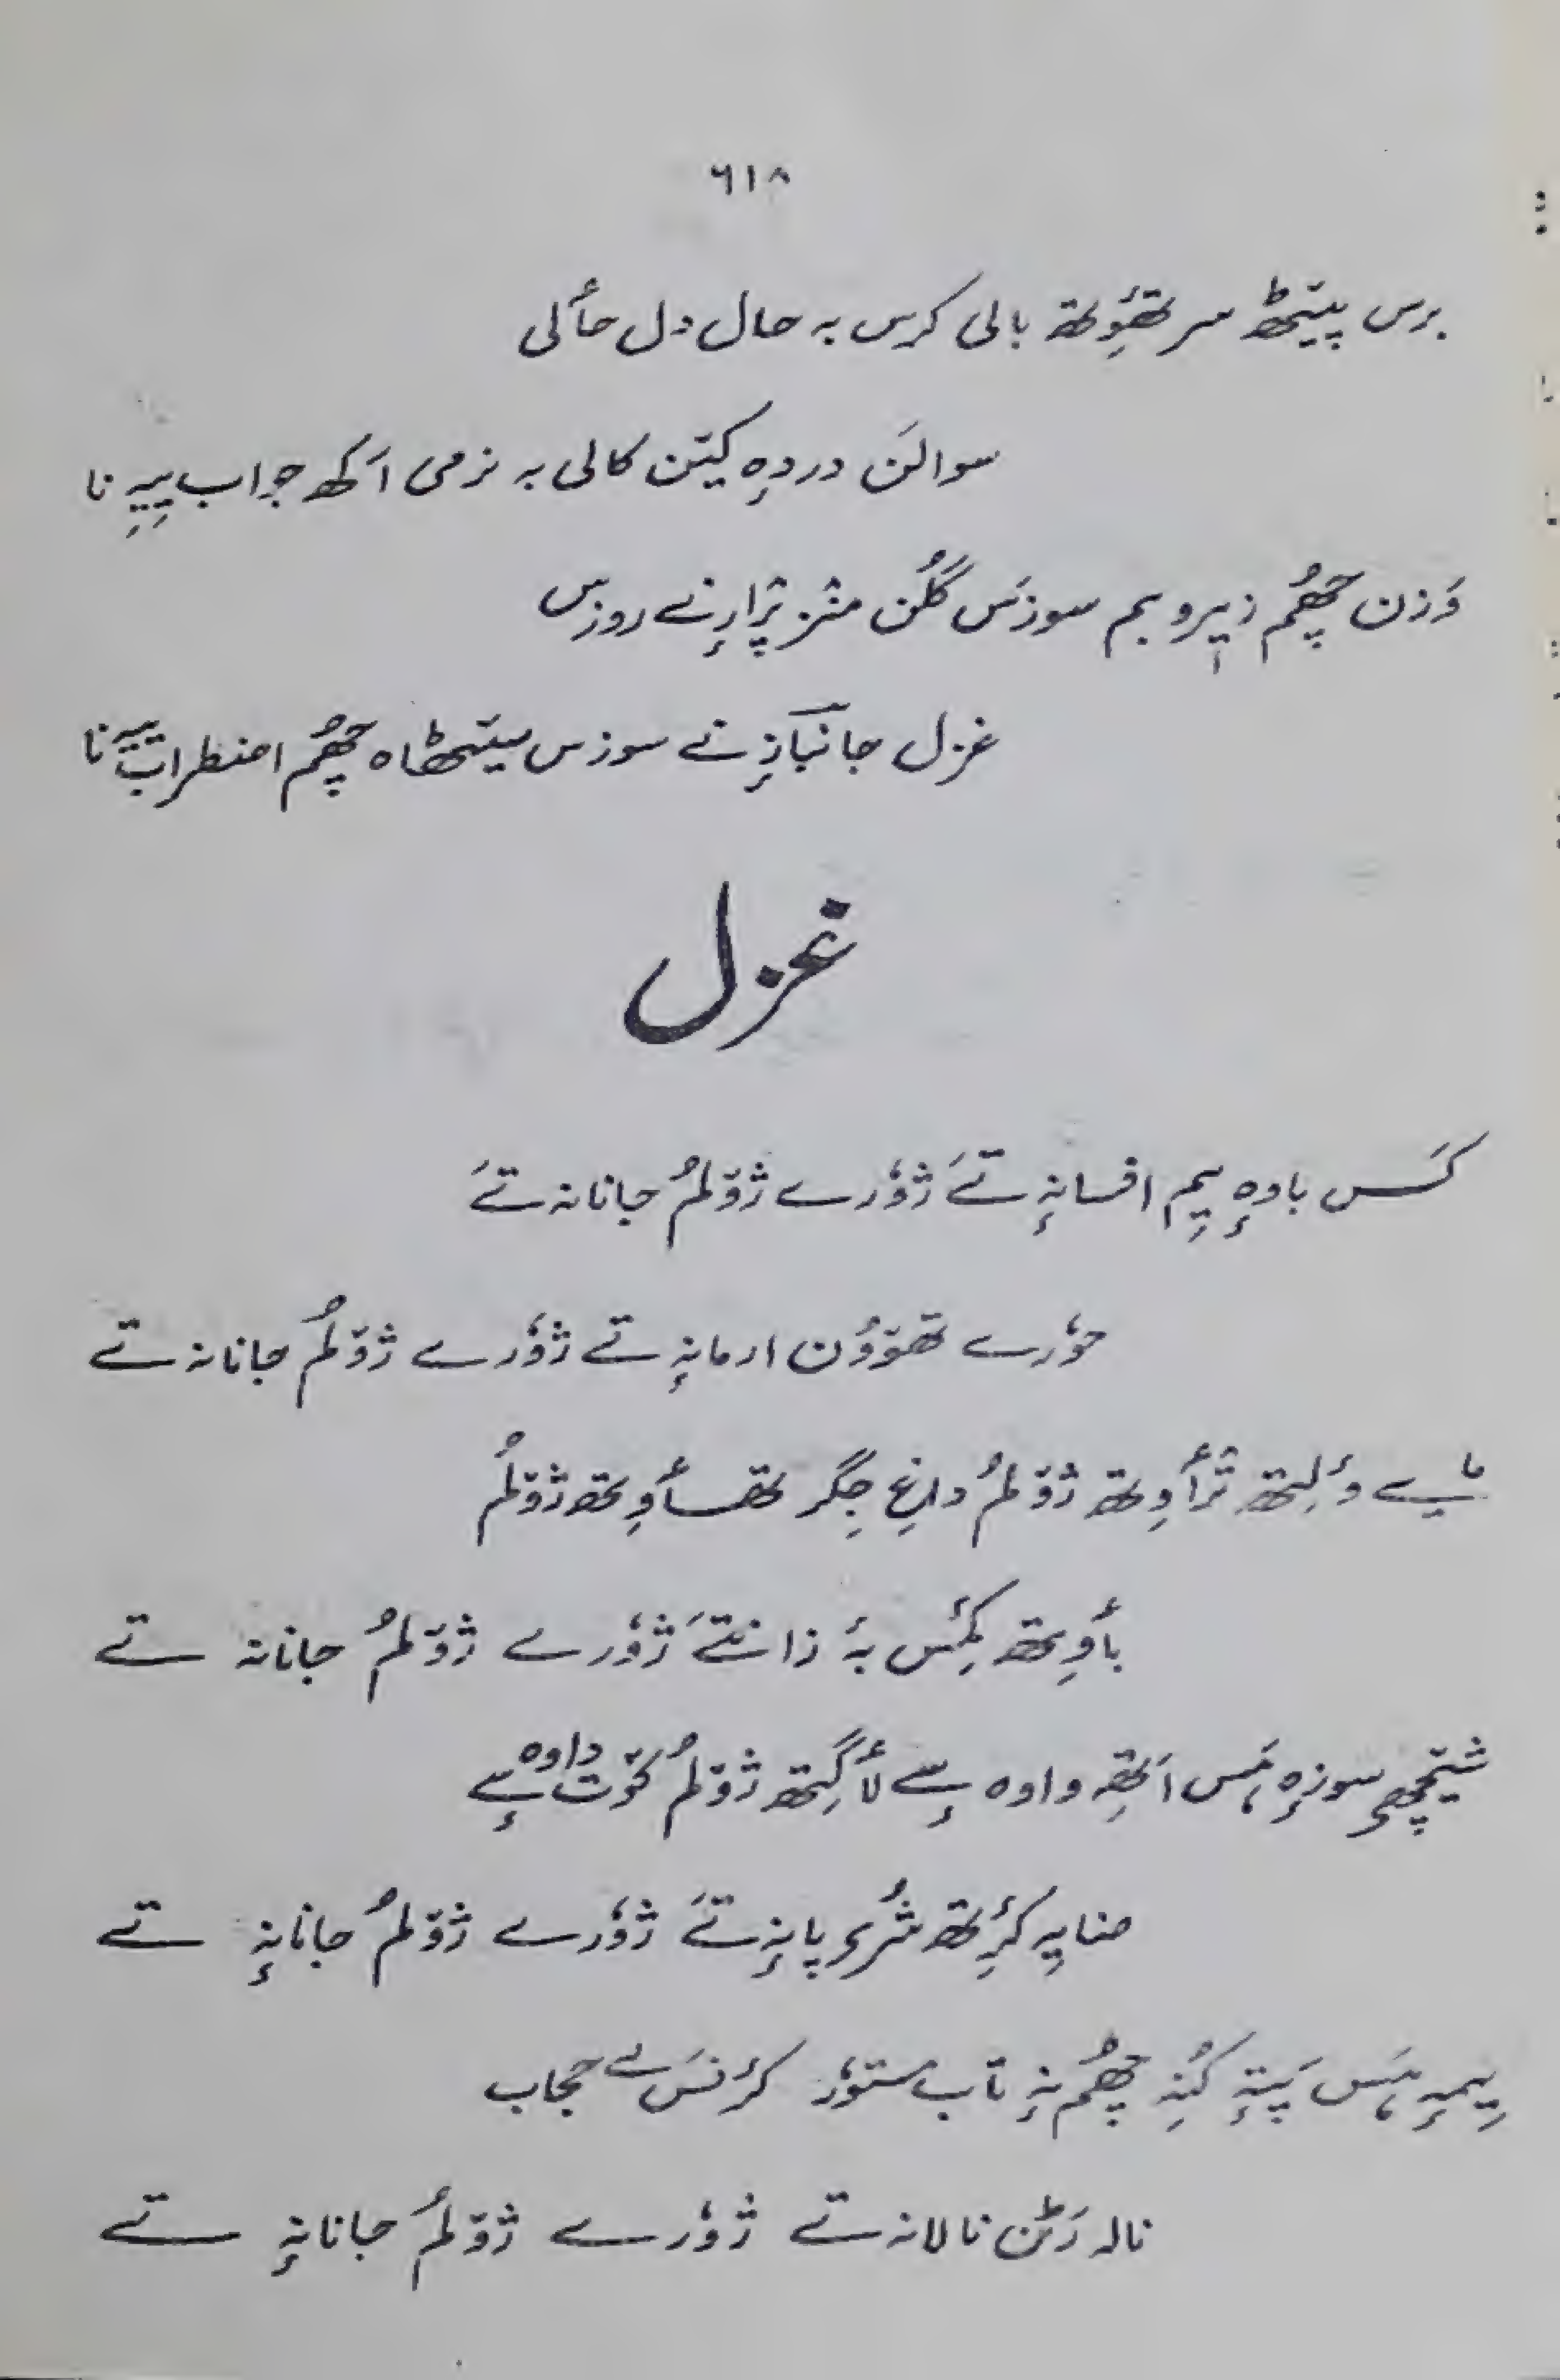 ٦١٨
برس پیٚٹھ سر تھٔوِتھ بالی کرس بہ حال دل حألی
سوالَن دردٕہ کیٚتن کالی بہ نرمی اَکھ جواب یِیہِ نا
وَزن چھُم زیٖر و بم سوزَس گُلَن منٛز ژٕارنے روزس
غزل جانبازنے سوزس سیٚٹھاہ چھُم اضطراب نا
غزل
کَس باوٕہ یِم افسانہٕ تےَ ژوٗرے ژوٚلمُ جانانہ تےَ
حوٗرے تھوٚوُن ارمانہٕ تے ژوٗرے ژوٚلمُ جانانہ تے
مایے ؤلِتھ ترٛأوِتھ ژوٚلمُ داغِ جِگر تھأوِتھ ژوٚلُم
بأوِتھ کٔمِس بۂ زانتےَ ژوٗرے ژوٚلمُ جانانہ تے
شیٚچھِ سوزٕہ ہَس اَتھِ واوہ سٕے لأگِتھ ژوٚلمُ کوٚت داوہ سٕے
ضایہِ کٔرِتھ شُری پانہٕ تےَ ژوٗرے ژوٚلمُ جانانہٕ تے
یِیمہٕ ہَس پَتہٕ کُنہِ چھُم نہٕ تاب مستوٗر کٔرنَس بے حجاب
نالہ رَٹن نالانہ تے ژوٗرے ژوٚلمُ جانانہٕ تے